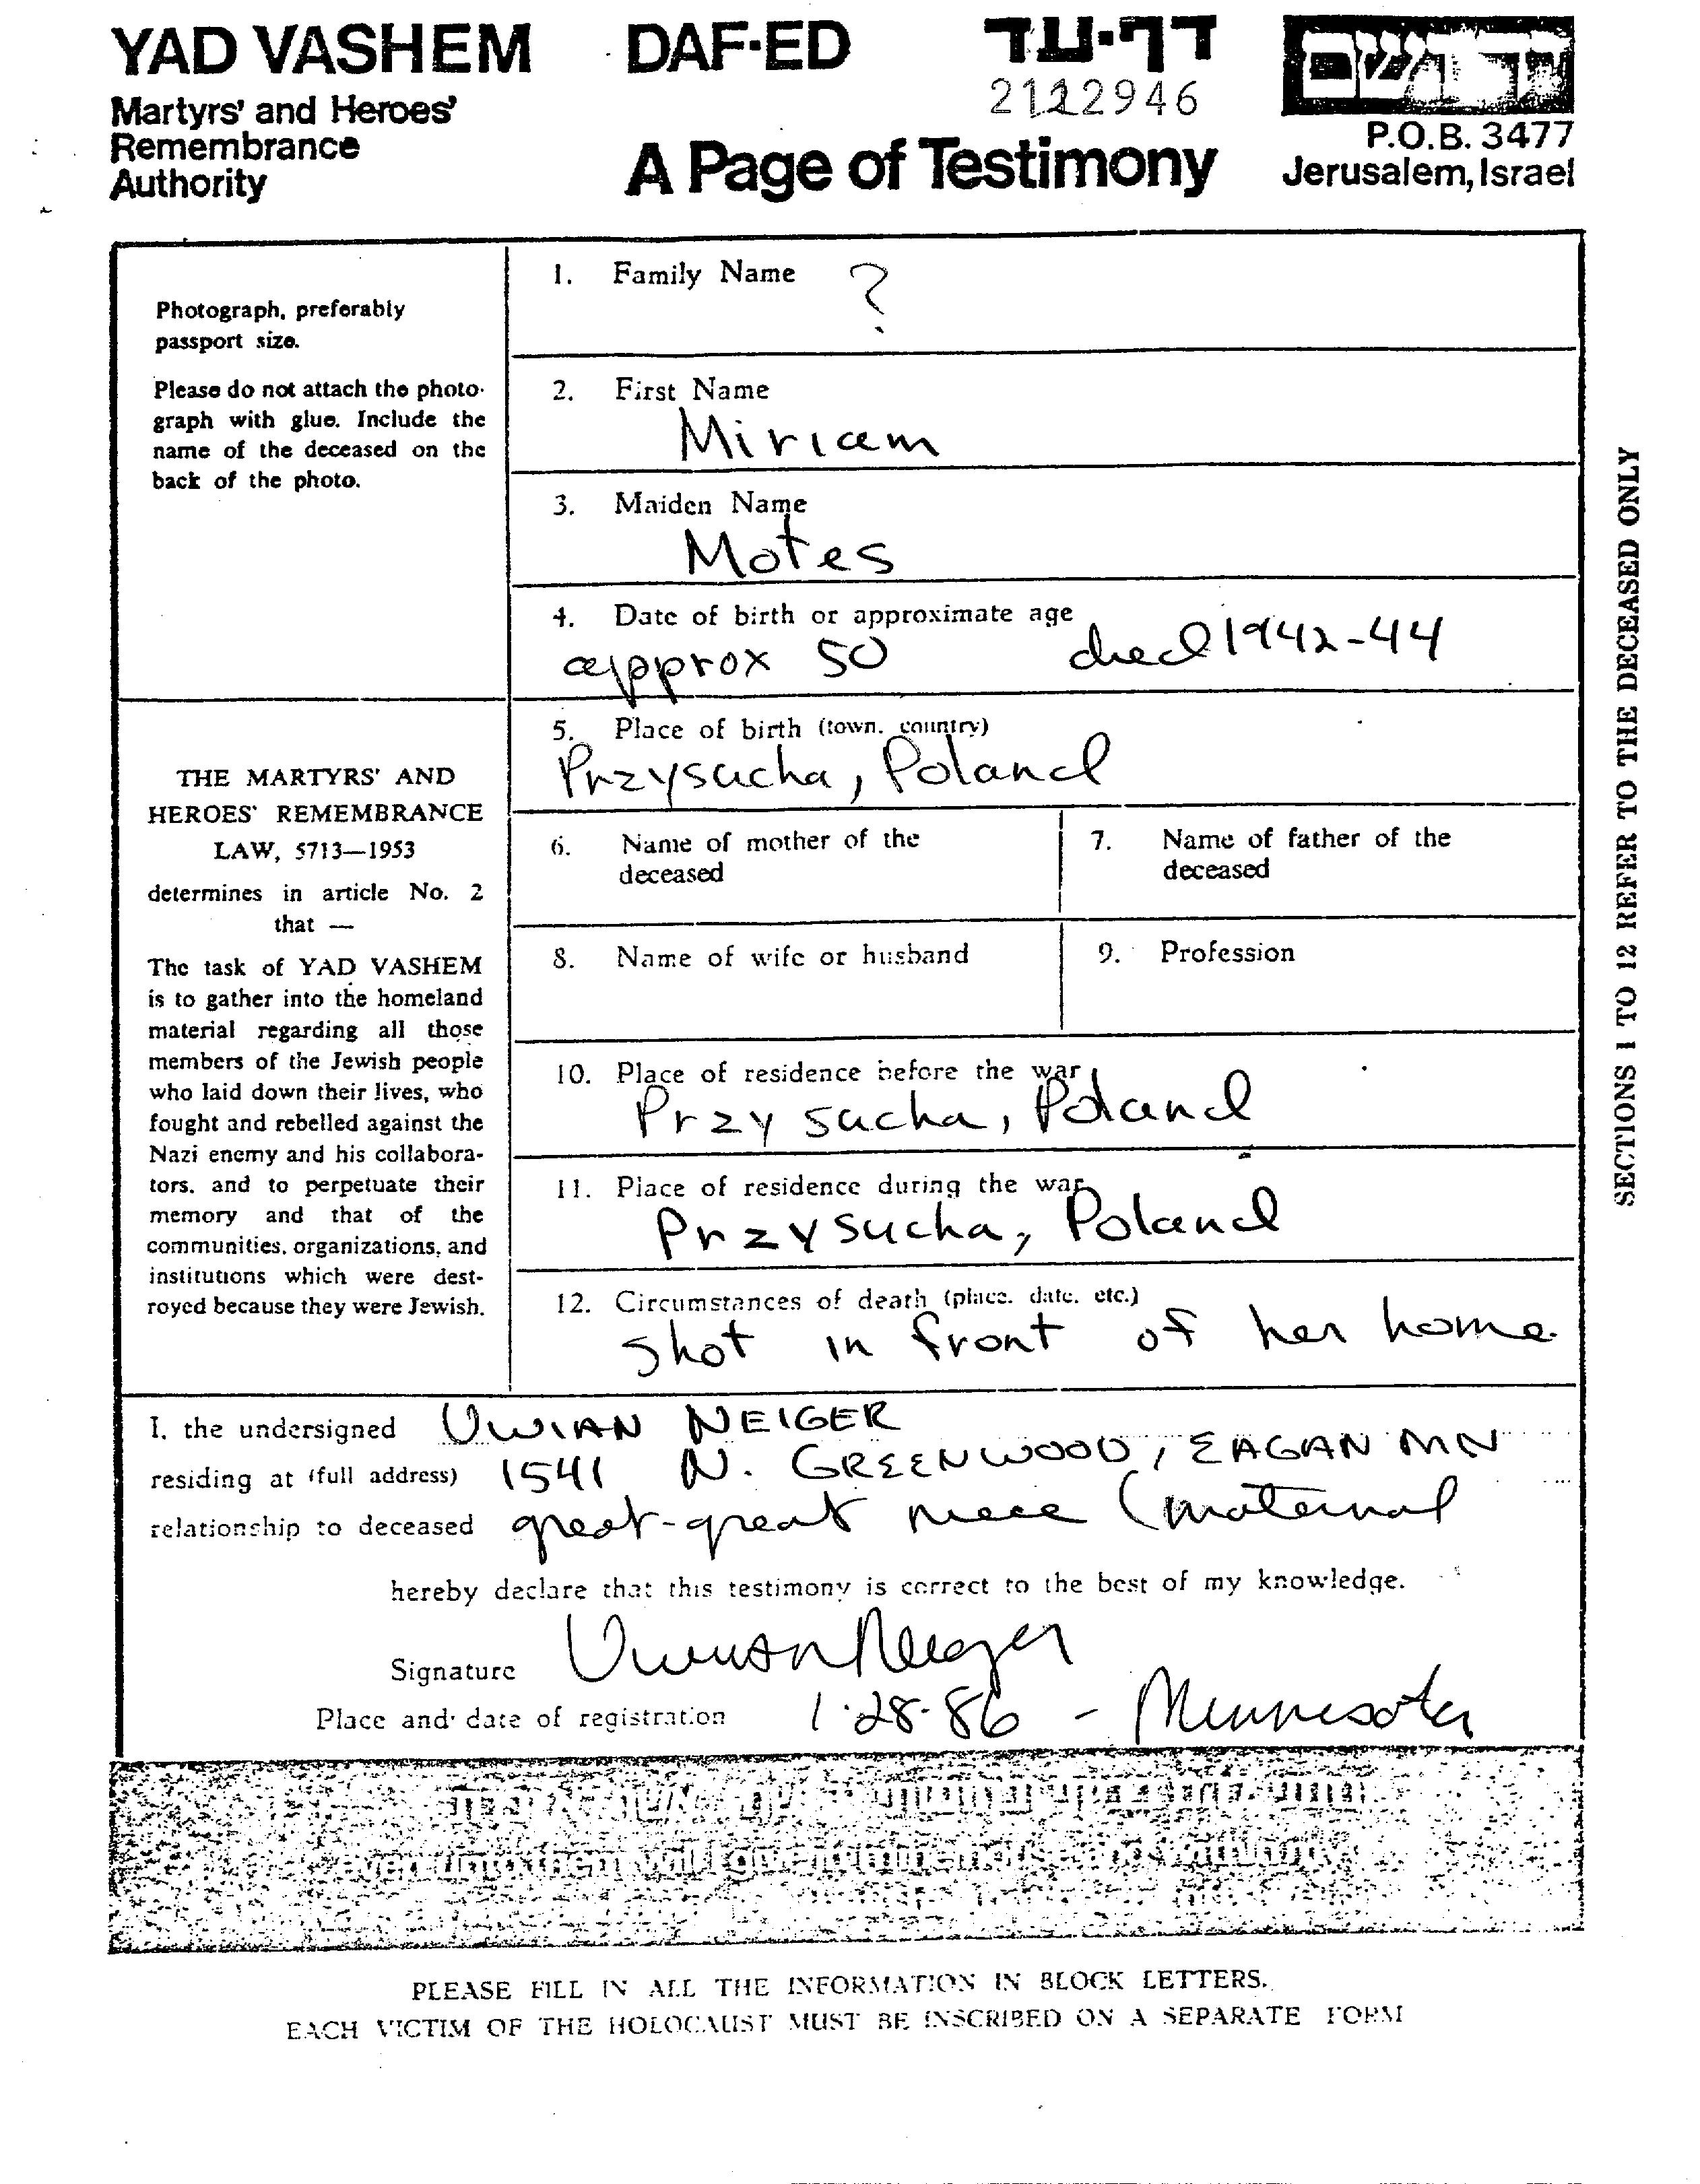 YAD VASHEM
Martyrs' and Heroes'
Remembrance
Authority
DAF-ED
דף-עד
2122946
A Page of Testimony
P.O.B. 3477
Jerusalem, Israel
Photograph, preferably
passport size.
Please do not attach the photo-
graph with glue. Include the
name of the deceased on the
back of the photo.
1. Family Name ?
2. First Name
Miriam
3. Maiden Name
Motes
4. Date of birth or approximate age
approx 50 died 1942-44
THE MARTYRS' AND
HEROES' REMEMBRANCE
LAW, 5713—1953
determines in article No. 2
that —
The task of YAD VASHEM
is to gather into the homeland
material regarding all those
members of the Jewish people
who laid down their lives, who
fought and rebelled against the
Nazi enemy and his collabora-
tors, and to perpetuate their
memory and that of the
communities, organizations, and
institutions which were dest-
royed because they were Jewish.
5. Place of birth (town, country)
Przysucha, Poland
6. Name of mother of the
deceased
7. Name of father of the
deceased
8. Name of wife or husband
9. Profession
10. Place of residence before the war
Przysucha, Poland
11. Place of residence during the war
Przysucha, Poland
12. Circumstances of death (place, date, etc.)
Shot in front of her home
SECTIONS 1 TO 12 REFER TO THE DECEASED ONLY
I, the undersigned VIVIAN NEIGER
residing at (full address) 1541 N. GREENWOOD, EAGAN MN
relationship to deceased great-great niece (maternal
hereby declare that this testimony is correct to the best of my knowledge.
Signature Vivian Neiger
Place and date of registration 1-28-86 - Minnesota
PLEASE FILL IN ALL THE INFORMATION IN BLOCK LETTERS.
EACH VICTIM OF THE HOLOCAUST MUST BE INSCRIBED ON A SEPARATE FORM